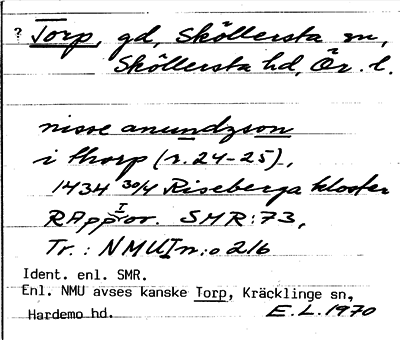 ? Torp, gd, Sköllersta sn,
Sköllersta hd, Ör. l.
nisse anundzson
i thorp (r. 24-25),
1434 30/4 Riseberga kloster
RApp I or. SMR:73,
Tr.: NMU I n:o 216
Ident. enl. SMR.
Enl. NMU avses kanske Torp, Kräcklinge sn,
Hardemo hd. E.L. 1970